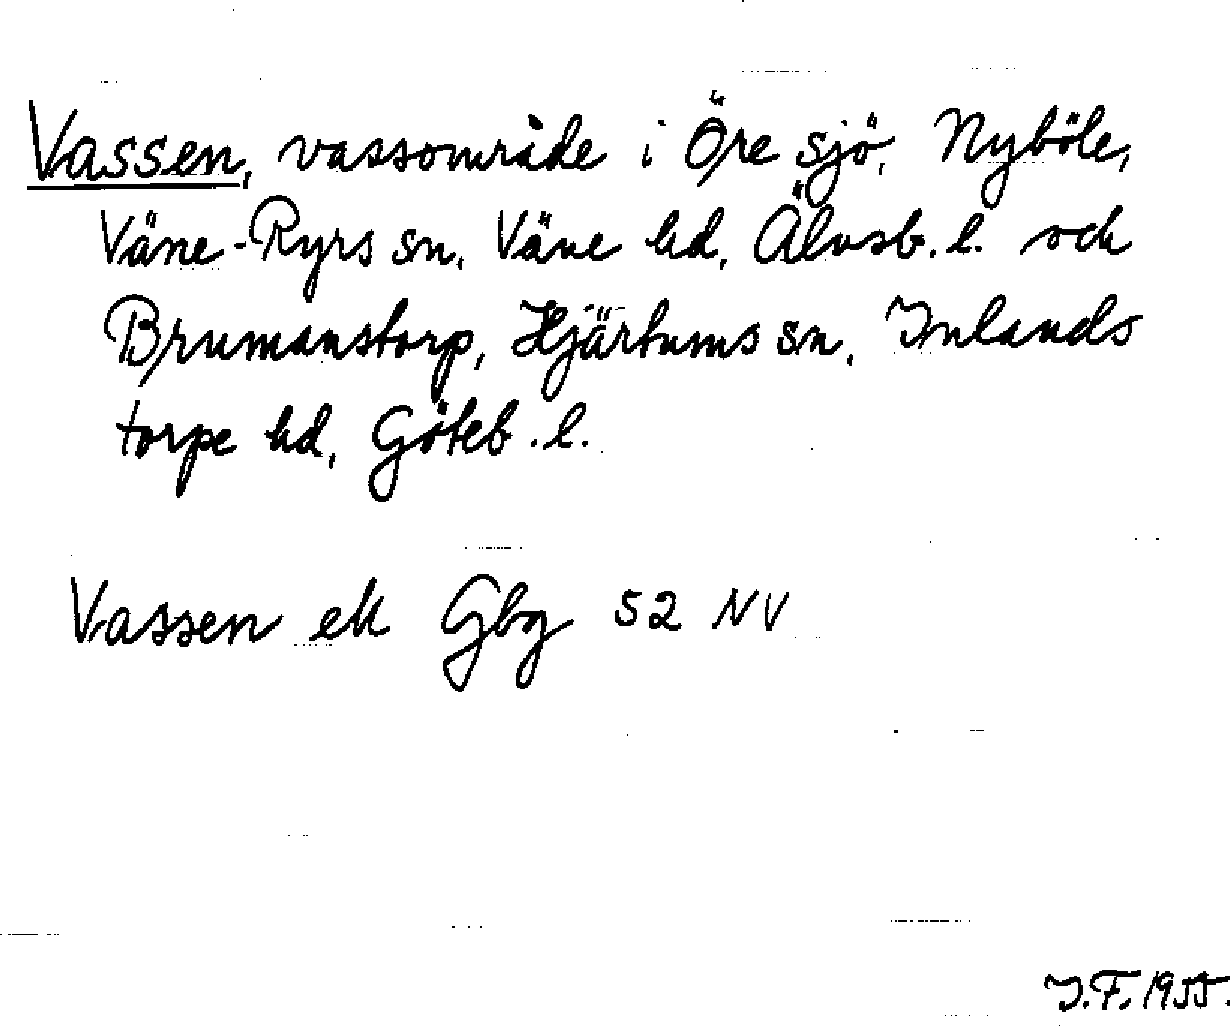 Vassen, vassområde i Öre sjö, Nyböle,
Väne-Ryrs sn, Väne hd, Älvsb. l. och
Brumanstorp, Hjärtums sn, Inlands
torpe hd, Göteb. l.
Vassen ek Gbg 52 NV
J.F. 1955.